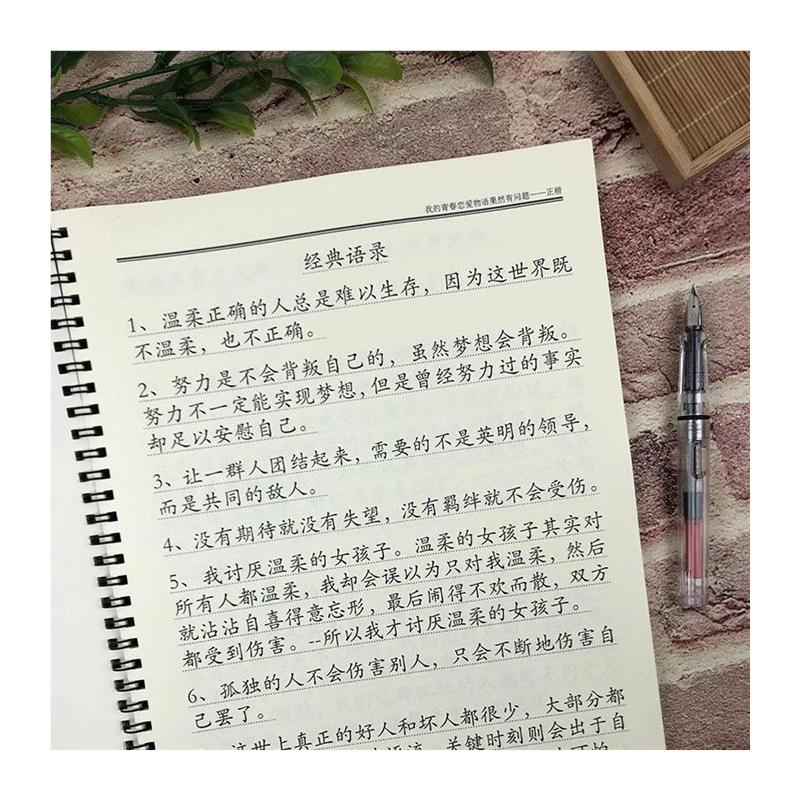 我的青春恋爱物语果然有问题——正楷
经典语录
1、温柔正确的人总是难以生存，因为这世界既
不温柔，也不正确。
2、努力是不会背叛自己的，虽然梦想会背叛。
努力不一定能实现梦想，但是曾经努力过的事实
却足以安慰自己。
3、让一群人团结起来，需要的不是英明的领导，
而是共同的敌人。
4、没有期待就没有失望，没有羁绊就不会受伤。
5、我讨厌温柔的女孩子。温柔的女孩子其实对
所有人都温柔，我却会误以为只对我温柔，然后
就沾沾自喜得意忘形，最后闹得不欢而散，双方
都受到伤害。--所以我才讨厌温柔的女孩子。
6、孤独的人不会伤害别人，只会不断地伤害自
己罢了。
这世上真正的好人和坏人都很少，大部分都
关键时刻则会出于自